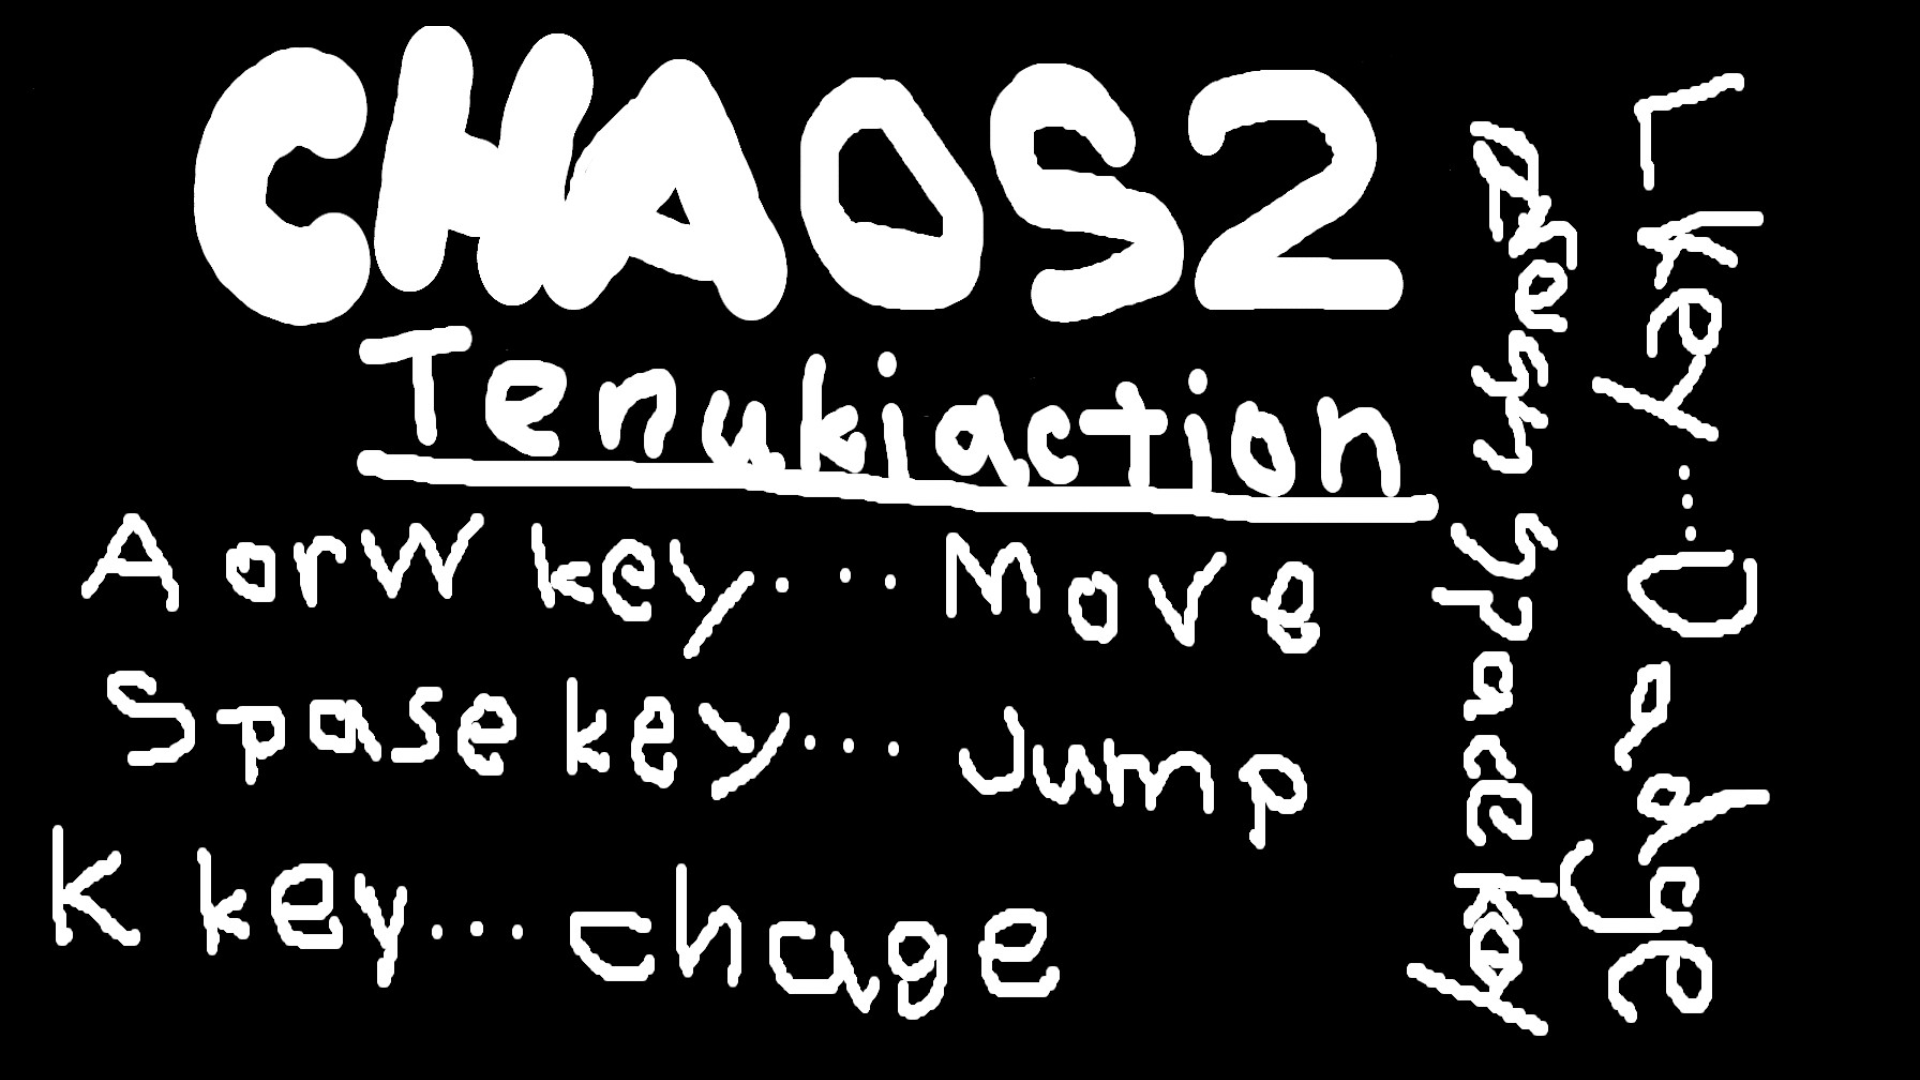 CHAOS2
Tenukiaction
A orW key... Move
Spase key... Jump
K key... chage
L key... Dodge
Push Space key